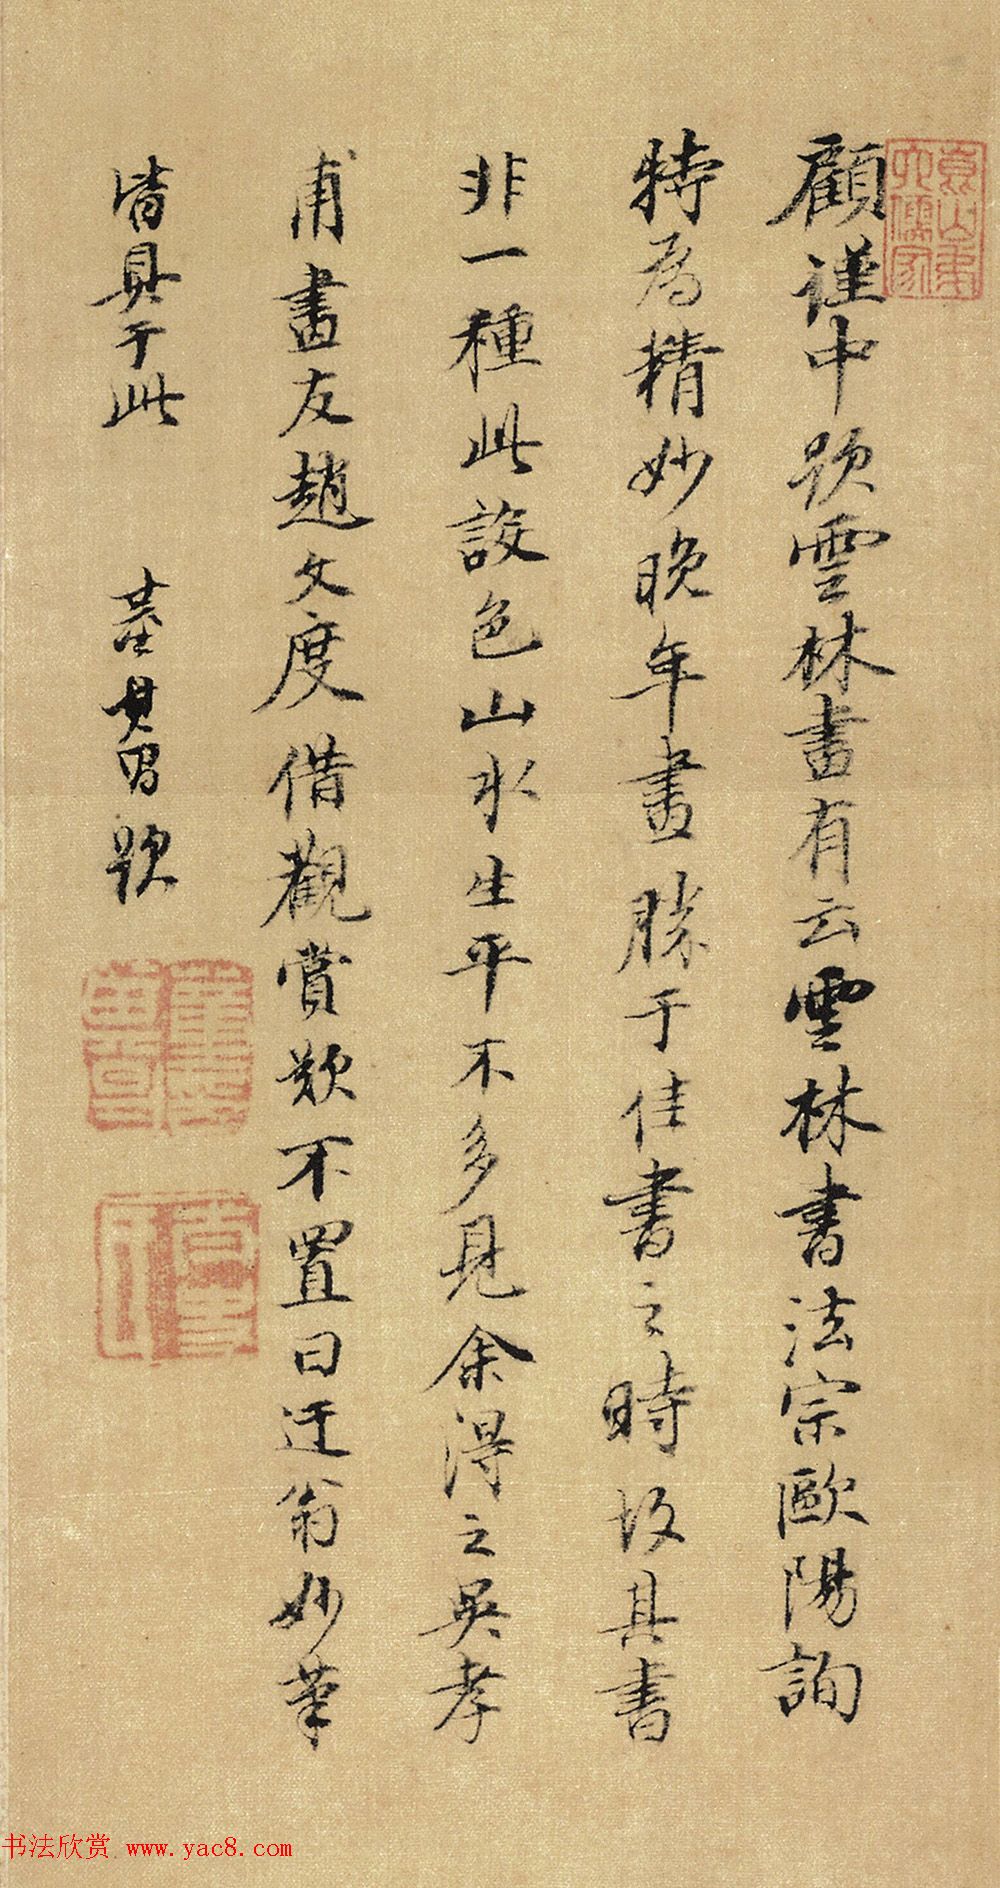 顧謹中題雲林畫有云雲林書法宗歐陽詢
特為精妙晚年畫勝于佳書之時故其書
非一種此設色山水生平不多見余得之吳孝
甫畫友趙文度借觀賞歎不置曰迂翁妙筆
皆具于此 董其昌題
书法欣赏 www.yac8.com